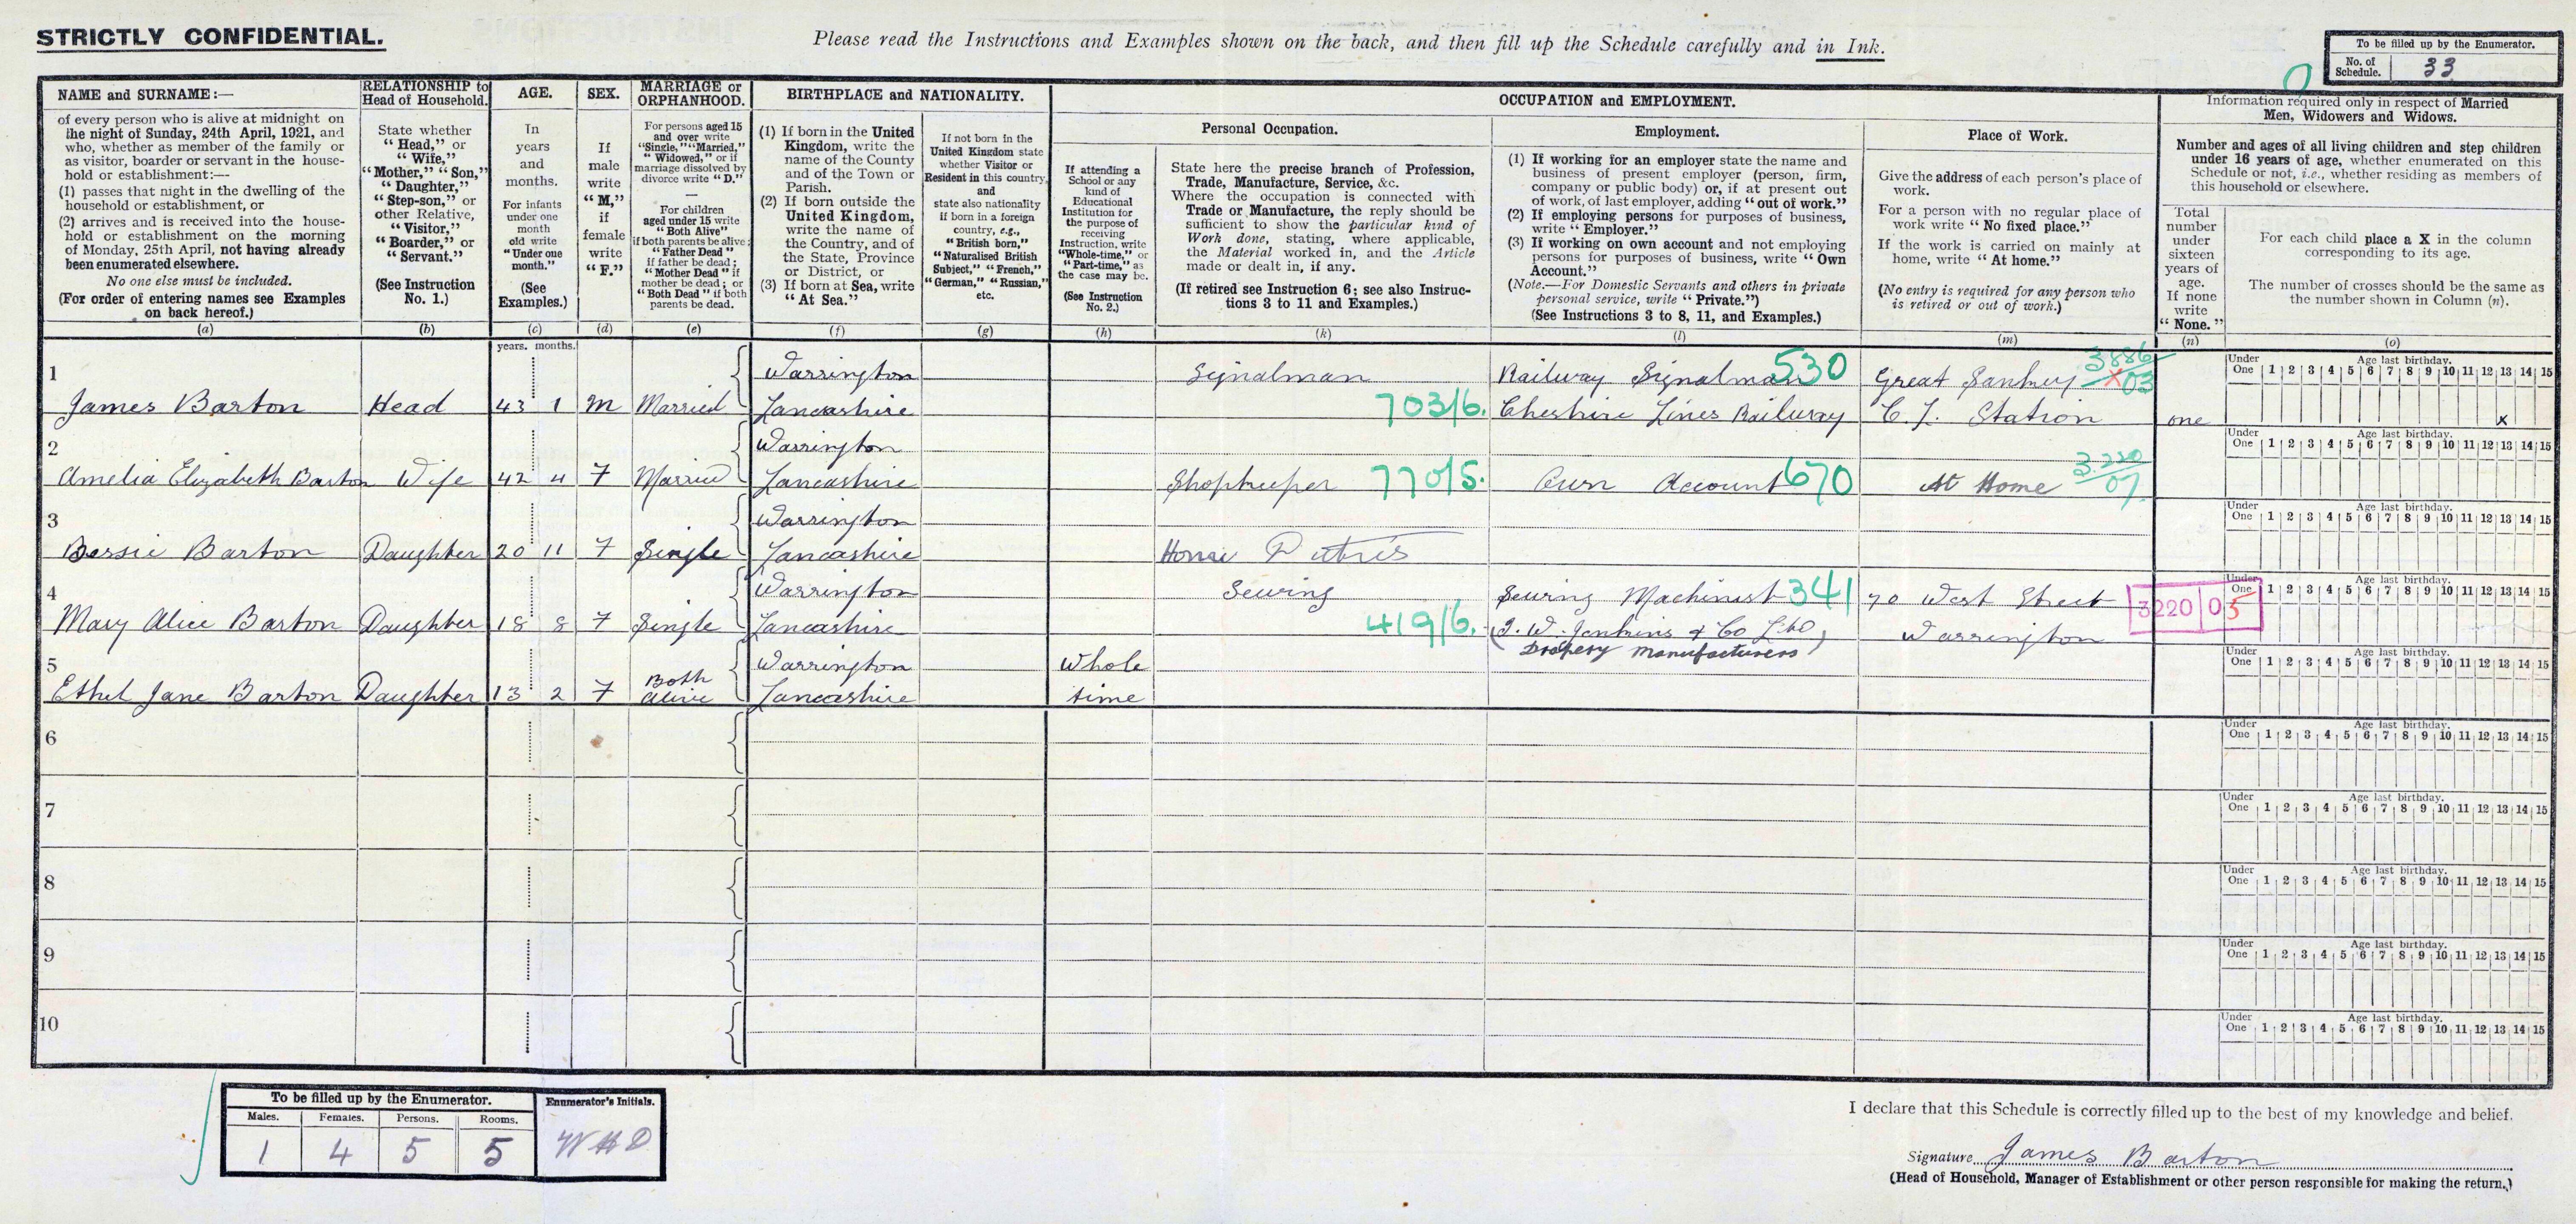 STRICTLY CONFIDENTIAL.
Please read the Instructions and Examples shown on the back, and then fill up the Schedule carefully and in Ink.
To be filled up by the Enumerator.
No. of Schedule. 33
NAME and SURNAME:—
of every person who is alive at midnight on
the night of Sunday, 24th April, 1921, and
who, whether as member of the family or
as visitor, boarder or servant in the house-
hold or establishment:—
(1) passes that night in the dwelling of the
household or establishment, or
(2) arrives and is received into the house-
hold or establishment on the morning
of Monday, 25th April, not having already
been enumerated elsewhere.
No one else must be included.
(For order of entering names see Examples
on back hereof.)
(a)
RELATIONSHIP to
Head of Household.
State whether
"Head," or
"Wife,"
"Mother," "Son,"
"Daughter,"
"Step-son," or
other Relative,
"Visitor,"
"Boarder," or
"Servant."
(See Instruction
No. 1.)
(b)
AGE.
In
years
and
months.
For infants
under one
month
old write
"Under one
month."
(See
Examples.)
(c)
SEX.
If
male
write
"M,"
if
female
write
"F."
(d)
MARRIAGE or
ORPHANHOOD.
For persons aged 15
and over write
"Single," "Married,"
"Widowed," or if
marriage dissolved by
divorce write "D."
—
For children
aged under 15 write
"Both Alive"
if both parents be alive;
"Father Dead"
if father be dead;
"Mother Dead" if
mother be dead; or
"Both Dead" if both
parents be dead.
(e)
BIRTHPLACE and NATIONALITY.
(1) If born in the United
Kingdom, write the
name of the County
and of the Town or
Parish.
(2) If born outside the
United Kingdom,
write the name of
the Country, and of
the State, Province
or District, or
(3) If born at Sea, write
"At Sea."
(f)
If not born in the
United Kingdom state
whether Visitor or
Resident in this country,
and
state also nationality
if born in a foreign
country, e.g.,
"British born,"
"Naturalised British
Subject," "French,"
"German," "Russian,"
etc.
(g)
OCCUPATION and EMPLOYMENT.
If attending a
School or any
kind of
Educational
Institution for
the purpose of
receiving
Instruction, write
"Whole-time," or
"Part-time," as
the case may be.
(See Instruction
No. 2.)
(h)
Personal Occupation.
State here the precise branch of Profession,
Trade, Manufacture, Service, &c.
Where the occupation is connected with
Trade or Manufacture, the reply should be
sufficient to show the particular kind of
Work done, stating, where applicable,
the Material worked in, and the Article
made or dealt in, if any.
(If retired see Instruction 6; see also Instruc-
tions 3 to 11 and Examples.)
(k)
Employment.
(1) If working for an employer state the name and
business of present employer (person, firm,
company or public body) or, if at present out
of work, of last employer, adding "out of work."
(2) If employing persons for purposes of business,
write "Employer."
(3) If working on own account and not employing
persons for purposes of business, write "Own
Account."
(Note.—For Domestic Servants and others in private
personal service, write "Private.")
(See Instructions 3 to 8, 11, and Examples.)
(l)
Place of Work.
Give the address of each person's place of
work.
For a person with no regular place of
work write "No fixed place."
If the work is carried on mainly at
home, write "At home."
(No entry is required for any person who
is retired or out of work.)
(m)
Information required only in respect of Married
Men, Widowers and Widows.
Number and ages of all living children and step children
under 16 years of age, whether enumerated on this
Schedule or not, i.e., whether residing as members of
this household or elsewhere.
Total
number
under
sixteen
years of
age.
If none
write
"None."
(n)
For each child place a X in the column
corresponding to its age.
The number of crosses should be the same as
the number shown in Column (n).
(o)
years. months.
Under One Age last birthday. 1 2 3 4 5 6 7 8 9 10 11 12 13 14 15
1 Warrington Signalman Railway Signalman 530 Great Sankey 3886 X03
James Barton Head 43 1 M Married Lancashire 703/6. Cheshire Lines Railway C. L. Station one x
Under One Age last birthday. 1 2 3 4 5 6 7 8 9 10 11 12 13 14 15
2 Warrington
Amelia Elizabeth Barton Wife 42 4 F Married Lancashire Shopkeeper 770/5. Own Account 670 At Home 3.220 07
Under One Age last birthday. 1 2 3 4 5 6 7 8 9 10 11 12 13 14 15
3 Warrington
Bessie Barton Daughter 20 11 F Single Lancashire House Duties
Under One Age last birthday. 1 2 3 4 5 6 7 8 9 10 11 12 13 14 15
4 Warrington Sewing Sewing Machinist 341 70 West Street 3220 05
Mary Alice Barton Daughter 18 8 F Single Lancashire 419/6. (J. W. Jenkins & Co Ltd) Warrington
Drapery manufacturers
Under One Age last birthday. 1 2 3 4 5 6 7 8 9 10 11 12 13 14 15
5 Both Warrington Whole
Ethel Jane Barton Daughter 13 2 F alive Lancashire time
Under One Age last birthday. 1 2 3 4 5 6 7 8 9 10 11 12 13 14 15
6
Under One Age last birthday. 1 2 3 4 5 6 7 8 9 10 11 12 13 14 15
7
Under One Age last birthday. 1 2 3 4 5 6 7 8 9 10 11 12 13 14 15
8
Under One Age last birthday. 1 2 3 4 5 6 7 8 9 10 11 12 13 14 15
9
Under One Age last birthday. 1 2 3 4 5 6 7 8 9 10 11 12 13 14 15
10
Under One Age last birthday. 1 2 3 4 5 6 7 8 9 10 11 12 13 14 15
To be filled up by the Enumerator.
Males. Females. Persons. Rooms.
1 4 5 5
Enumerator's Initials.
WHD
I declare that this Schedule is correctly filled up to the best of my knowledge and belief.
Signature James Barton
(Head of Household, Manager of Establishment or other person responsible for making the return.)